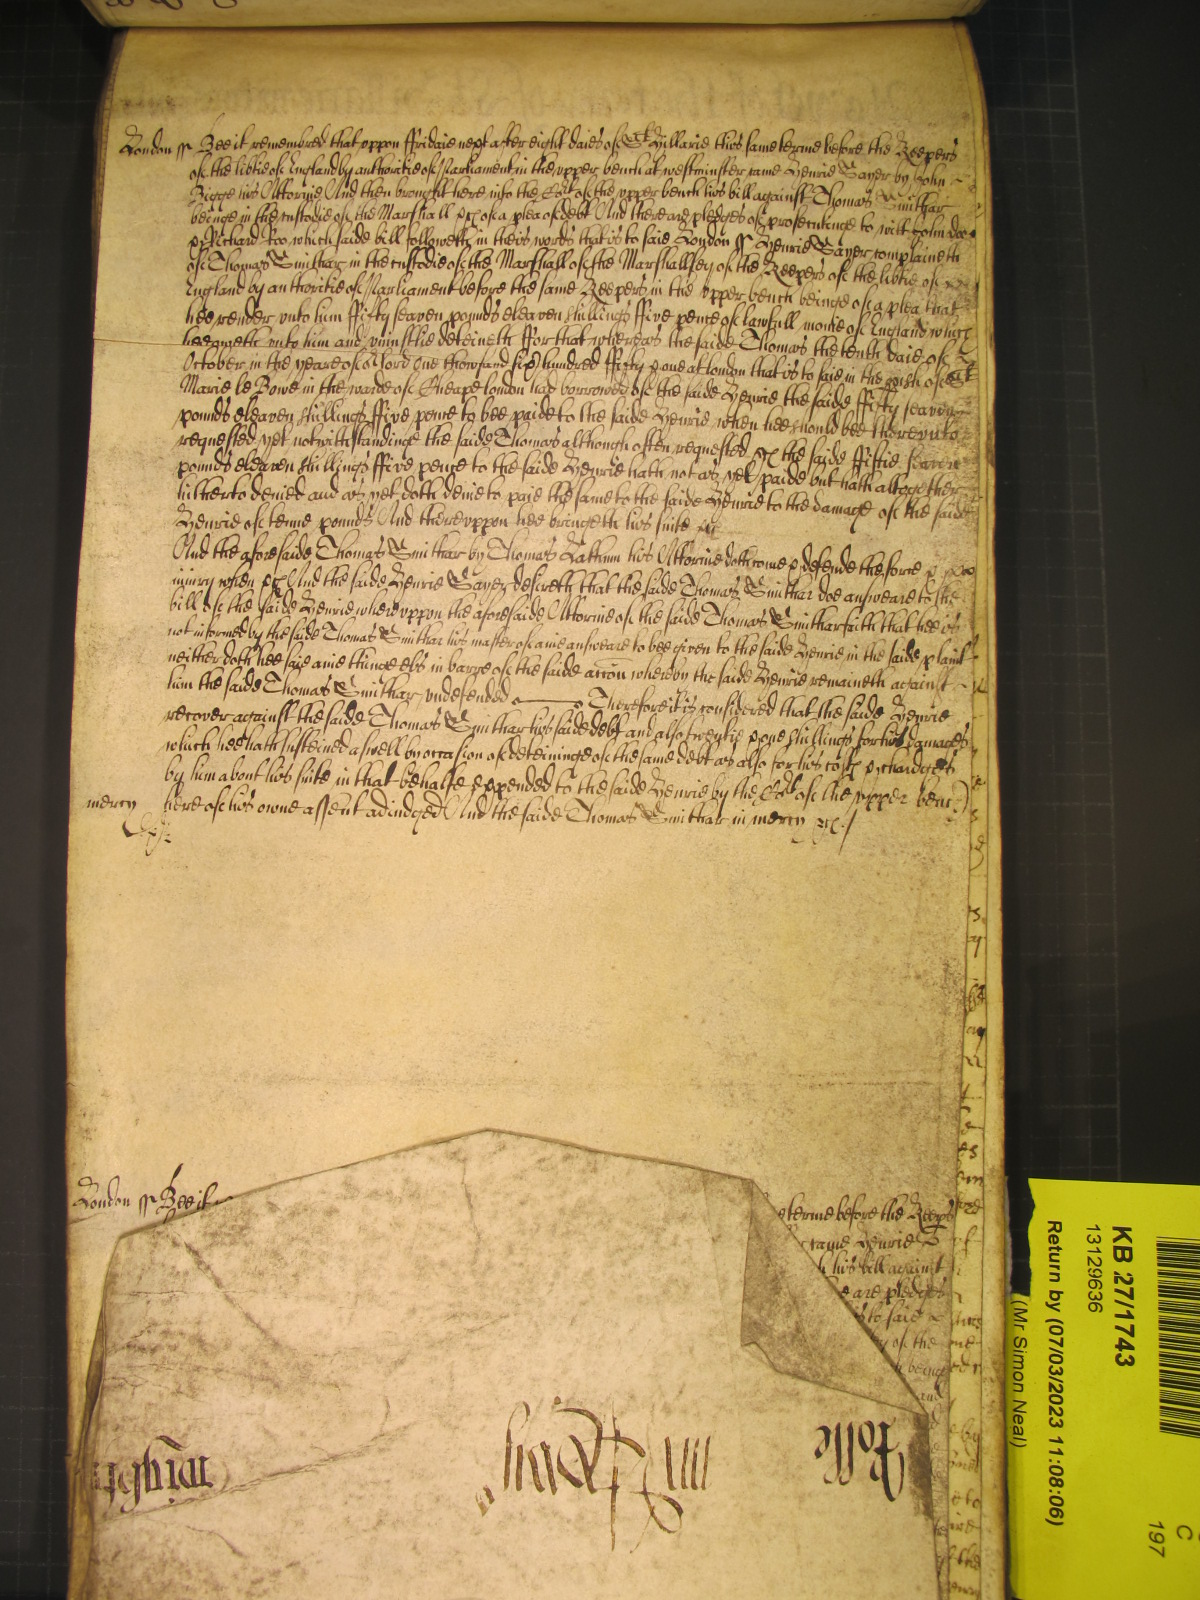 London ss Bee it remembred that uppon ffridaie next after eight daies of St Hillarie this same terme before the Keepers
of the lib'tie of England by authoritie of Parliament in the upper bench at westminster came Henrie Sayer by John
Bigge his Attornie And then brought here into the Court of the upper bench his bill against Thomas Smithar
beinge in the custodie of the Marshall &c of a plea of debt And there are pledges of prosecutinge to witt John doo
& Richard Roo which saide bill followeth in theis words that is to saie London ss Henrie Sayer complaineth
of Thomas Smithar in the custodie of the Marshall of the Marshallsey of the Keepers of the lib'tie of
England by authoritie of Parliament before the same Keepers in the upper bench beinge of a plea that
hee render unto him ffifty seaven pounds eleaven shillings ffive pence of lawfull monie of England which
hee oweth unto him and uniustlie deteineth ffor that whereas the saide Thomas the tenth daie of
October in the yeare of o'r lord one thowsand six hundred fifty & one at london that is to saie in the p'ish of St
Marie le Bowe in the warde of Cheape london had borrowed of the saide Henrie the saide ffifty seaven
pounds eleaven shillings ffive pence to bee paide to the saide Henrie when hee should bee thereunto
requested yet notwithstandinge the saide Thomas although often requested &c the saide ffiftie seaven
pounds eleaven shillings ffive pence to the saide Henrie hath not as yet paide but hath altogether
hitherto denied and as yet doth denie to paie the same to the saide Henrie to the damage of the saide
Henrie of tenne pounds And thereuppon hee bringeth his suite &c
And the aforesaide Thomas Smithar by Thomas his Attornie doth come & defende the force &
iniury when &c And the saide Henrie Sayer desireth that the saide Thomas Smithar doe answeare to the
bill of the saide Henrie whereuppon the aforesaide Attornie of the saide Thomas Smithar saith that hee is
not informed by the saide Thomas Smithar his master of anie answeare to bee given to the saide Henrie in the saide plaint
neither doth hee saie anie thinge els in barre of the saide acc'on whereby the saide Henrie remaineth against
him the saide Thomas Smithar undefended Therefore it is considered that the saide Henrie
recover against the saide Thomas Smithar his saide debt and also twentie & one shillings for his damages
which hee hath susteined aswell by occasion of deteininge of the same debt as also for his costs & chardges
by him about his suite in that behalfe expended to the saide Henrie by the Court of the upper bench
mercy here of his owne assent adiudged And the saide Thomas Smithar in mercy &c
London ss Bee it
terme before the Keep's
came Henrie
his bill against
are pledges
is to saie
of the
beinge
and
Rolle
KB 27/1743
13129636
Return by (07/03/2023 11:08:06)
(Mr Simon Neal)
C
197